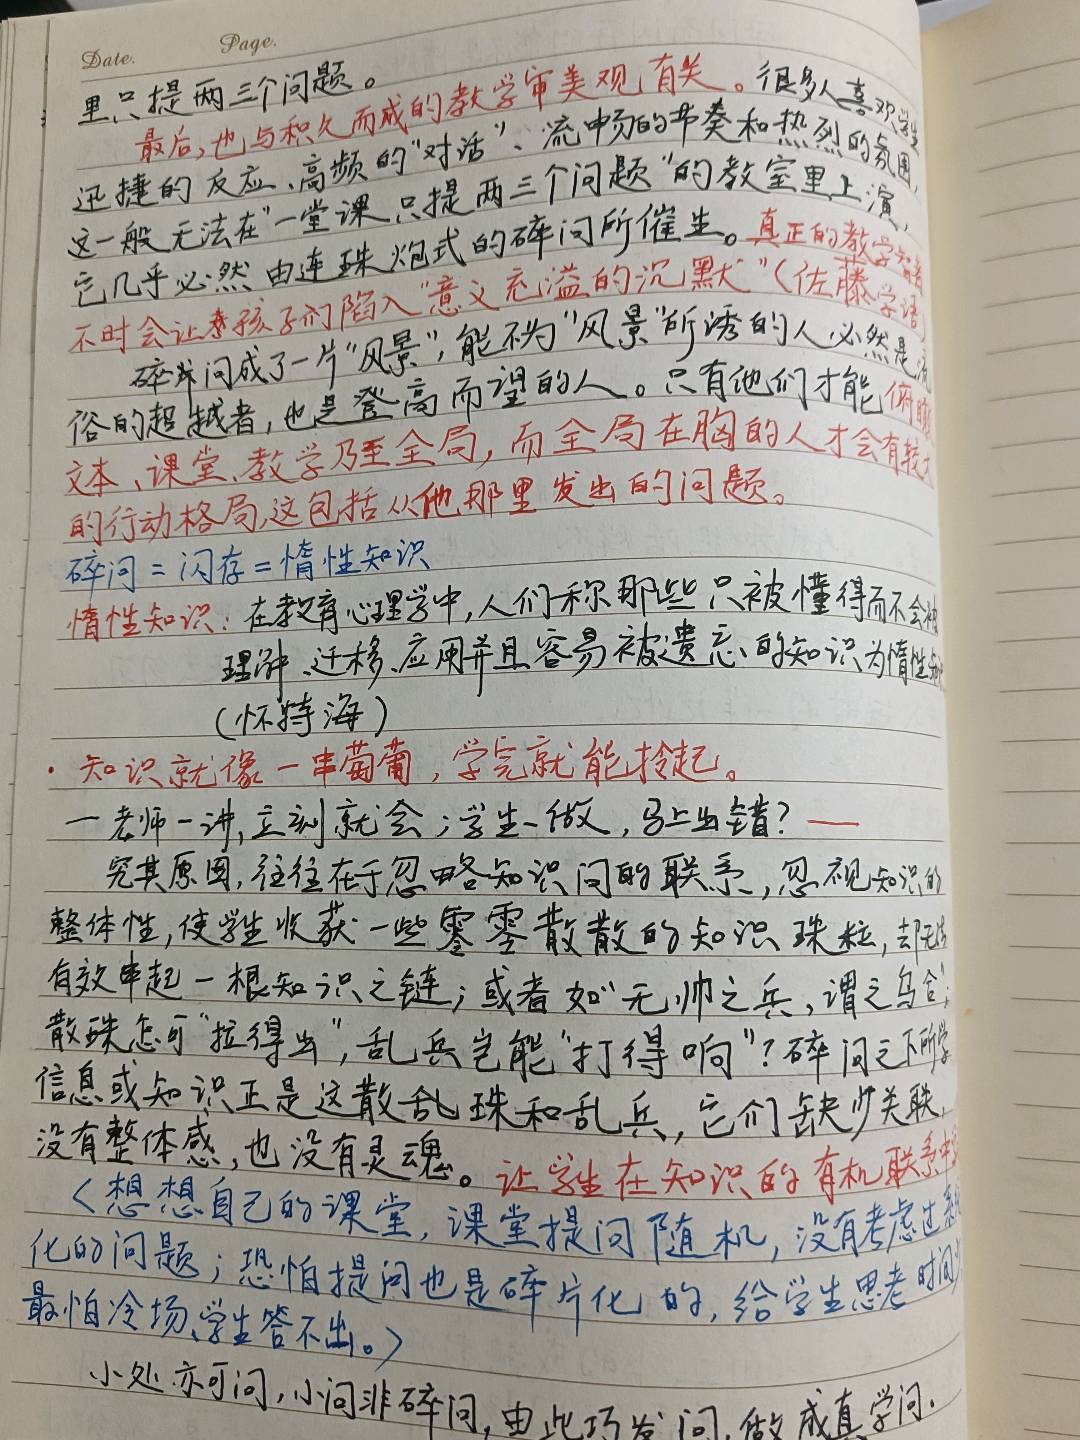 Date. Page.
里只提两三个问题。
最后,也与积久而成的教学审美观有关。很多人喜欢学生
迅捷的反应、高频的“对话”、流畅的节奏和热烈的氛围,
这一般无法在“一堂课只提两三个问题”的教室里上演,
它几乎必然由连珠炮式的碎问所催生。真正的教学智者
不时会让孩子们陷入“意义充溢的沉默”(佐藤学语)
碎问成了一片“风景”,能不为“风景”所诱的人必然是流
俗的超越者,也是登高而望的人。只有他们才能俯瞰
文本、课堂、教学乃至全局,而全局在胸的人才会有较大
的行动格局,这包括从他那里发出的问题。
碎问=闪存=惰性知识
惰性知识:在教育心理学中,人们称那些只被懂得而不会被
理解、迁移、应用并且容易被遗忘的知识为惰性知识
(怀特海)
·知识就像一串葡萄,学完就能拎起。
一老师一讲,立刻就会;学生一做,马上出错?——
究其原因,往往在于忽略知识间的联系,忽视知识的
整体性,使学生收获一些零零散散的知识珠粒,却无法
有效串起一根知识之链;或者如“无帅之兵,谓之乌合”;
散珠怎可“拉得出”,乱兵岂能“打得响”?碎问之下所学
信息或知识正是这散乱珠和乱兵,它们缺少关联,
没有整体感,也没有灵魂。让学生在知识的有机联系中
〈想想自己的课堂,课堂提问随机,没有考虑过系统
化的问题;恐怕提问也是碎片化的,给学生思考时间少
最怕冷场、学生答不出。〉
小处亦可问,小问非碎问,由此巧发问,做成真学问.